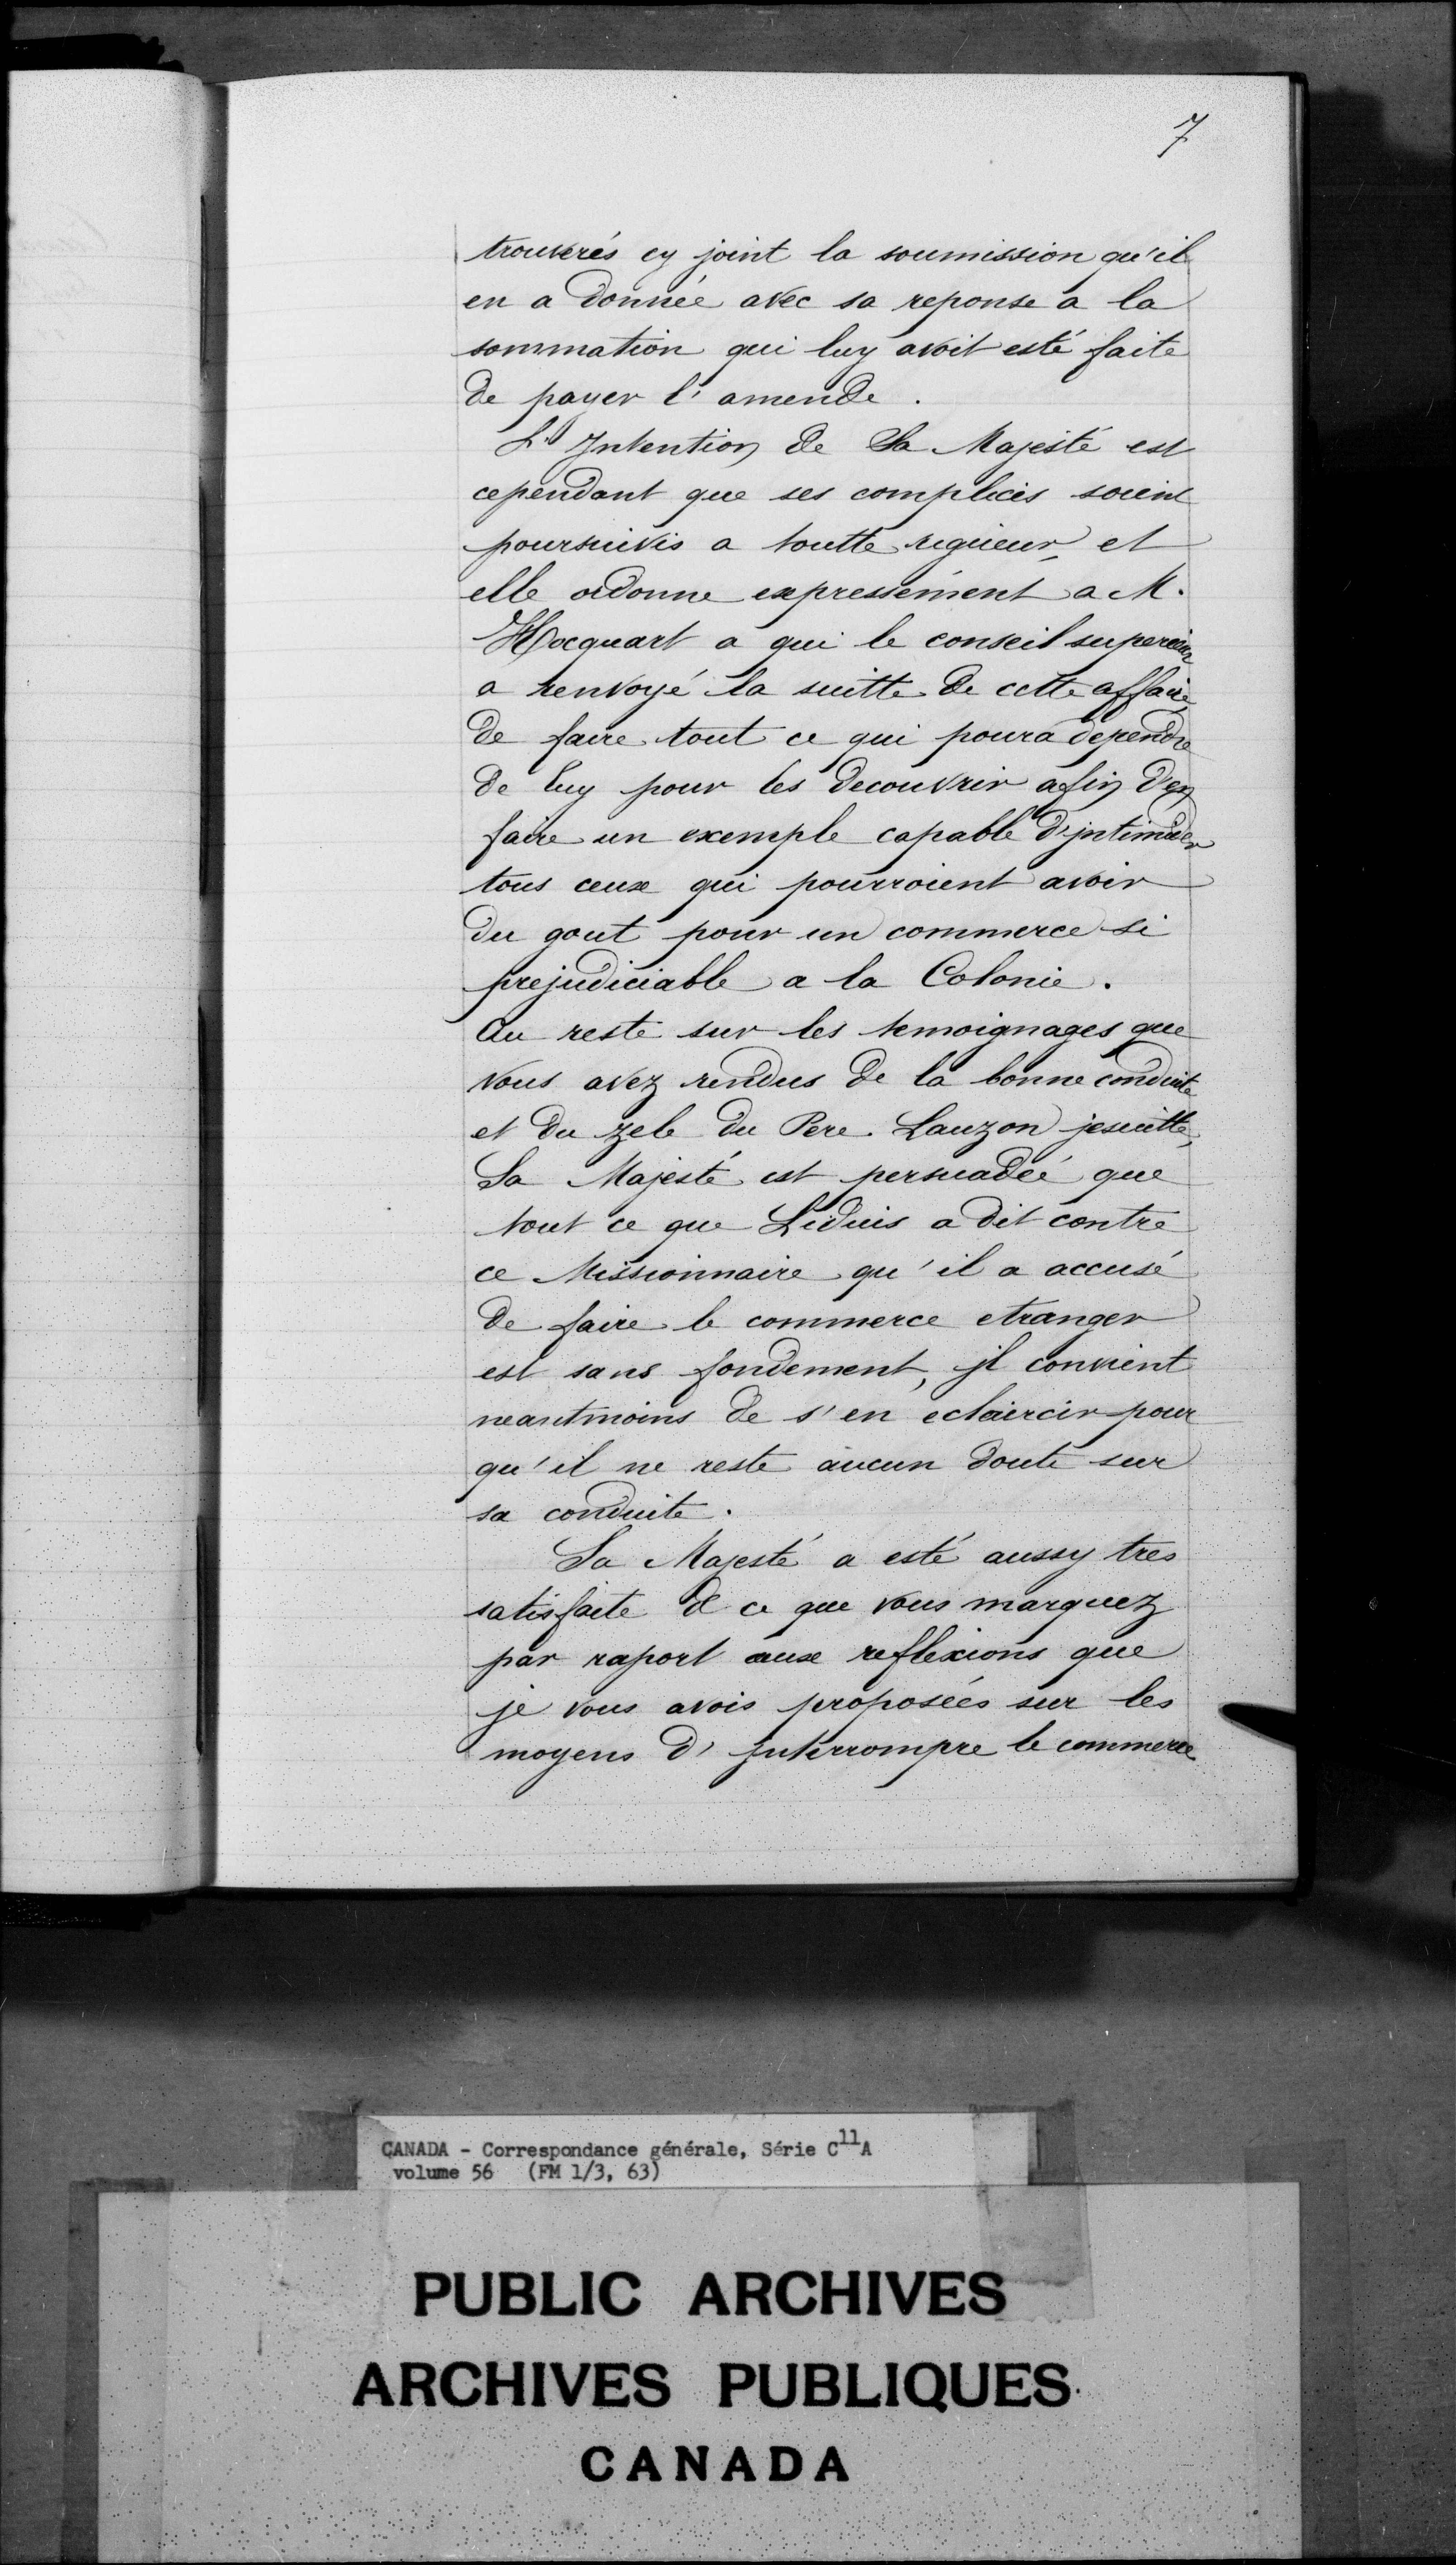 7
trouverés cy joint la soumission qu'il
en a donnée avec sa reponse a la
sommation qui luy avoit esté faite
de payer l'amende.
L'Intention de Sa Majesté est
cependant que ses complices soient
poursuivis a toutte rigueur, et
elle ordonne expressement a M.
Hocquart a qui le conseil superieur
a renvoyé la suitte de cette affaire
de faire tout ce qui poura dependre
de luy pour les decouvrir afin d'en
faire un exemple capable d'jntimider
tous ceux qui pourroient avoir
du gout pour un commerce si
prejudiciable a la Colonie.
Au reste sur les temoignages que
vous avez rendus de la bonne conduite
et du zele du Pere Lauzon jesuitte,
Sa Majesté est persuadée que
tout ce que Lidius a dit contre
ce Missionnaire qu'il a accusé
de faire le commerce etranger
est sans fondement, jl convient
neantmoins de s'en eclaircir pour
qu'il ne reste aucun doute sur
sa conduite.
Sa Majesté a esté aussy tres
satisfaite de ce que vous marquez
par raport aux reflexions que
je vous avois proposées sur les
moyens d'Interrompre le commerce
CANADA - Correspondance générale, Série C11A
volume 56 (FM 1/3, 63)
PUBLIC ARCHIVES
ARCHIVES PUBLIQUES
CANADA